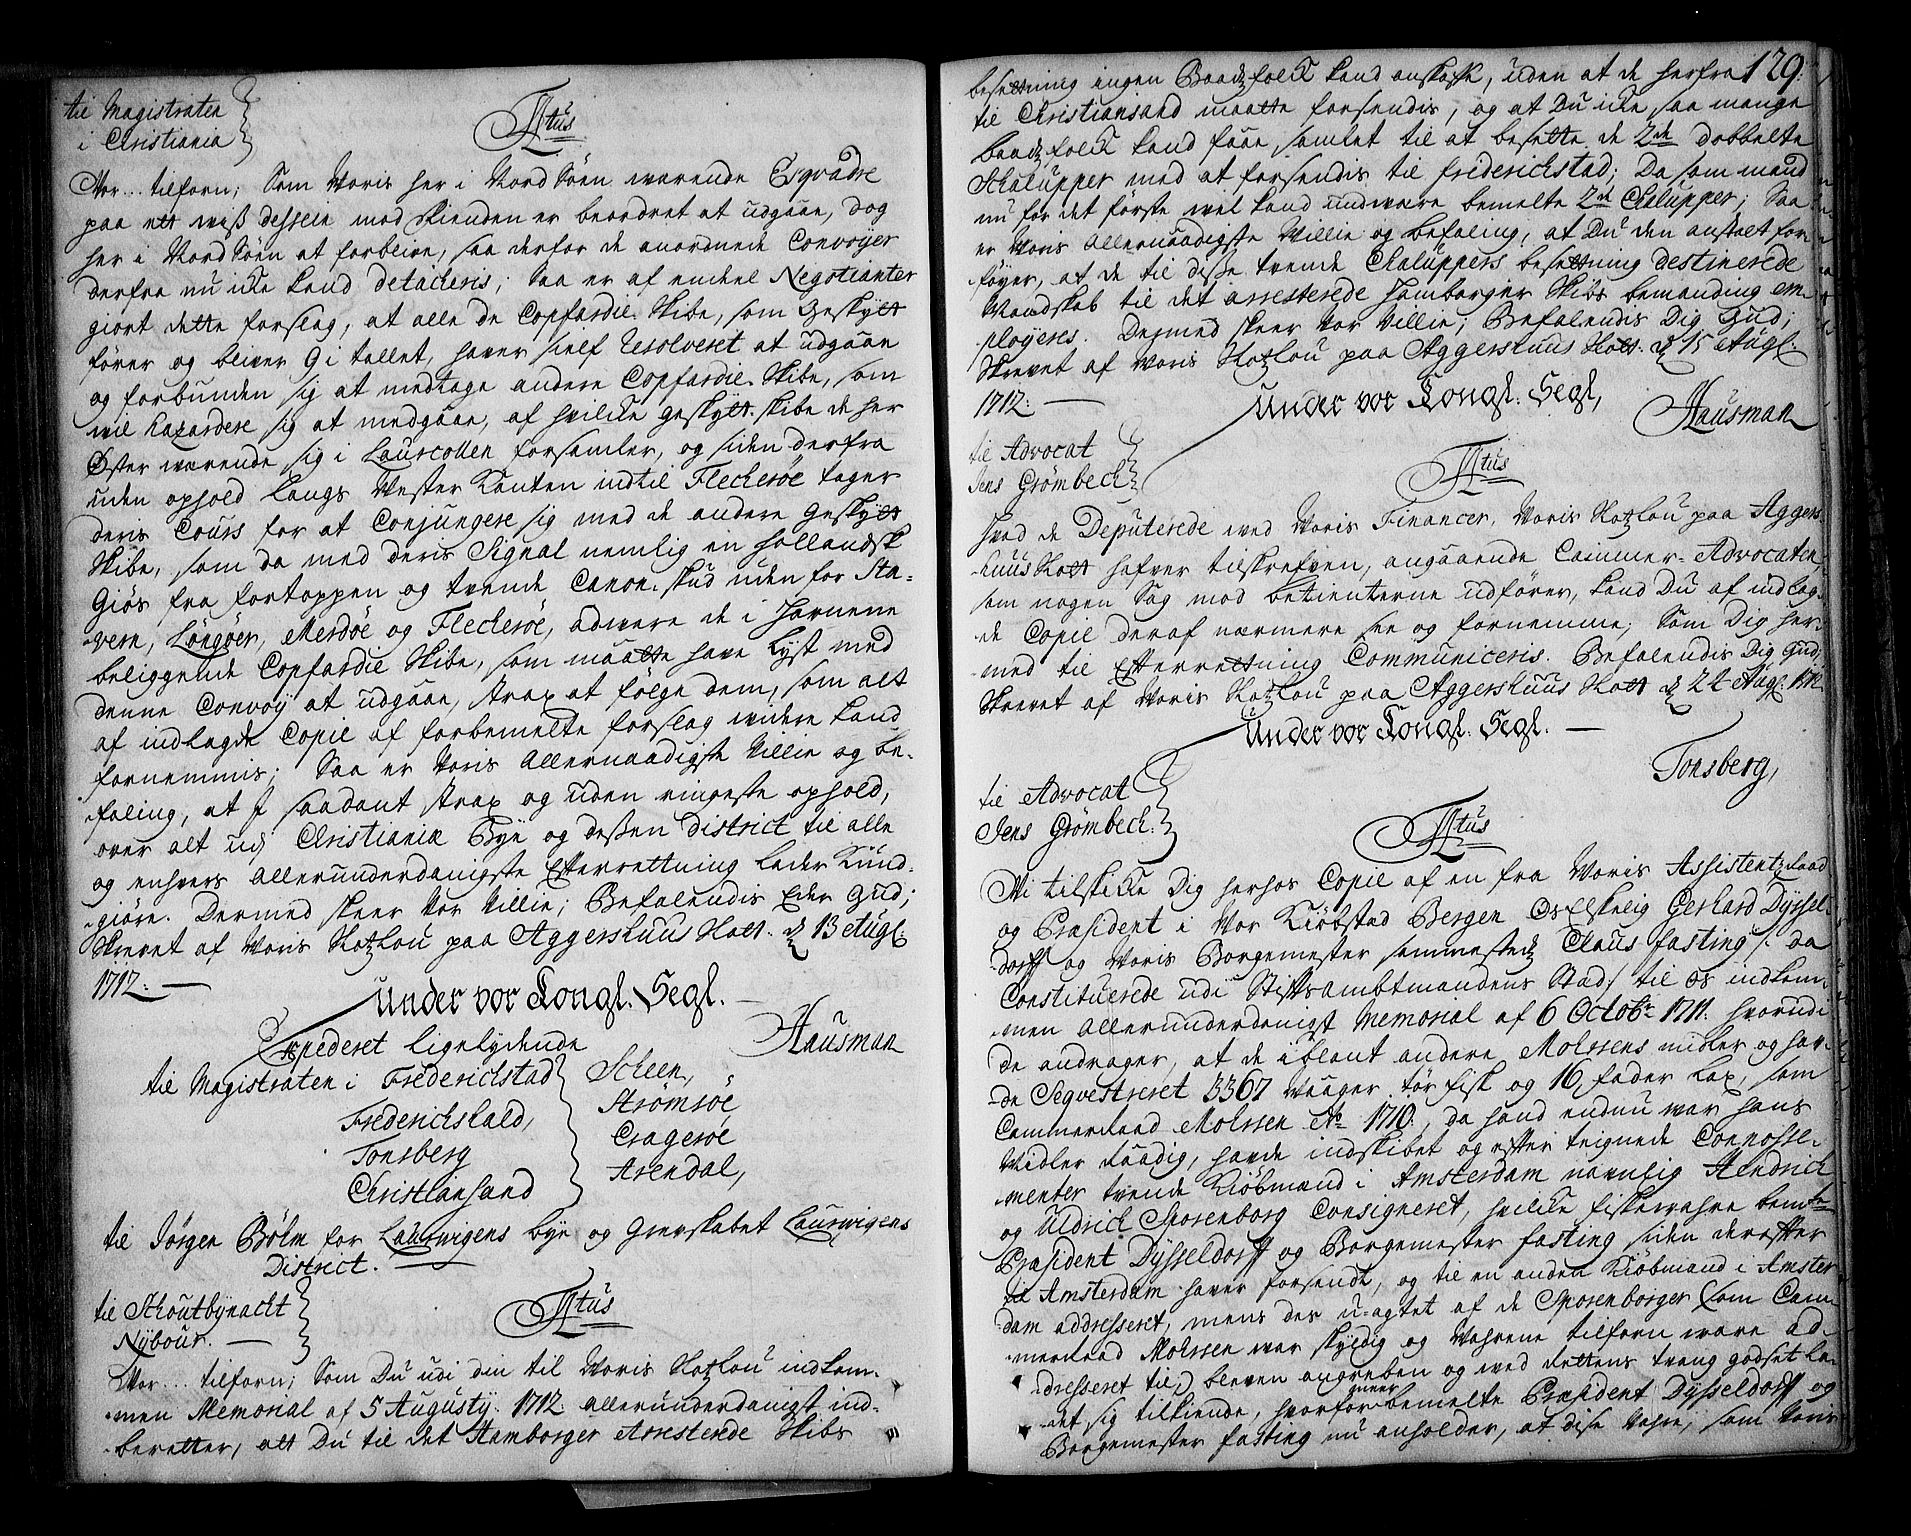 til Magistraten
i Christiania
Titus
Vor... tilforn; Som Voris her i Nord Søen warende Esqvadre
paa ett wiß dessein mod fienden er beordret at udgaae, dog
her i Nord Søen at forblive, saa derfor de anordnede Convoyer
derfra nu icke kand detacheris; saa er af endeel Negotianter
giort dette forslag, at alle de Copfardie Skibe, som Geskytt
fører og bliver 9 i tallet, haver self resolveret at udgaae
og forbunden sig at medtage andere Copfardie Skibe, som
wil hazardere sig at medgaae, af hvilcke geskytt skibe de her
Øster wærende sig i Laurcollen forsamler, og siden derfra
uden ophold langs Vester Kanten indtil Fleckerøe tager
deris Cours for at Conjungere sig med de andere Geskytt
Skibe, som da med deris Signal nemlig en hollandsk
Giøs fra fortoppen og tvende Canon-skud uden for Sta-
vern, Longøer, Merdøe og Fleckerøe, advare de i Havnene
beliggende Copfardie Skibe, som maatte have Lyst med
denne Convoy at udgaae, strax at følge dem, som alt
af indlagde Copie af forbemelte forslag widere kand
fornemmis; Saa er Voris allernaadigste Villie og be-
faling, at I saadant strax og uden ringeste ophold,
over alt udj Christiania Bye og deßen district til alle
og enhvers allerunderdanigste Efterrettning lader Kund-
giøre. Dermed skeer Vor Villie; Befalendis Eder Gud;
Skrevet af Voris Slotzlou paa Aggershuus Slott. d 13 Augl:
1712:
Under vor Kongl. Segl.
Hausman
Expederet ligelydende
til Magistraten i Frederichstad
Frederichshald,
Tonsberg
Christiansand
Scheen,
Strømsøe
Cragerøe
Arendal,
til Jørgen Bølm for Laurwigens bye og Grevskabet Laurwigens
District.
til Schoutbynacht
Nybour.
Titus
Vor... tilforn; Som Du udi din til Voris Slotzlou indkom-
men Memorial af 5 Augusty 1712. allerunderdanigst ind-
beretter, att Du til det Hamborger Arresterede Skibs
129.
besettning ingen Baadzfolck kand anskafe, uden at de herfra
til Christiansand maatte forsendis, og at Du icke saa mange
baadzfolck kand faae samlet til at besette de 2de dobbelte
Schalupper med at forsendis til Frederichstad; Da som mand
nu for det første wel kand undwære bemelte 2de Chalupper; Saa
er Voris Allernaadigste Villie og befaling, at Du den anstalt for-
føyer, at de til disse tvende Chaluppers besettning destinerede
Mandskab til det arresterede Hamborger Skibs bemanding em-
ployeres. Dermed skeer Vor Villie; Befalendis Dig Gud;
Skrevet af Voris Slotzlou paa Aggershuus Slott. d 15 Augl:
1712:
Under vor Kongl. Segl,
Hausman
til Advocat
Jens Grømbech
Titus
Hvad de Deputerede ved Voris Financer, Voris Slotzlou paa Aggers-
huus Slott hafver tilskrefven, angaaende Cammer-Advocaten,
som nogen Sag mod betienterne udfører, kand Du af indlag-
de Copie deraf nærmere see og fornemme; Som Dig her-
med til Efterrettning Communiceris. Befalendis Dig Gud;
Skrevet af Voris Slotzlou paa Aggershuus Slott d 22 Augl: 1712
Under vor Kongl. Segl.
Tonsberg,
til Advocat
Jens Grømbech.
Titus
Wi tilskicke Dig herhos Copie af en fra Voris Assistentzraad
og Præsident i Vor Kiøbstad Bergen Os Elskelig Gerhard Dyssel-
dorff og Voris Borgemester sammestedz Claus fasting /: da
Constituerede udi Stiftsambtmandens Stad/ til os indkom-
men allerunderdanigst Memorial af 6 Octobr 1711. hvorudi
de andrager, at de iblant andere Mohssens midler og hav-
de Seqvestreret 3367 Waager tør fisk og 16 fader Lax, som
Cammerraad Mohssen Ao 1710, da hand endnu war hans
Midler raadig, havde indskibet og efter teignede Connosse-
menter tvende Kiøbmænd i Amsterdam navnlig Hendrich
og Uldrich Sporenborg Consigneret, hvilcke fiskewahre bemte
Præsident Dysseldorff og Borgemester fasting siden derefter
til Amsterdam haver forsendt, og til en anden Kiøbmand i Amster
dam addresseret, mens der u-agtet af de Sporenborger (som Cam-
merraad Mohssen war skyldig og Wahrene tilforn ware ad-
dresseret til) bleven angreben og ved rettens tvang godset la-
det sig tilkiende, hvorfor meer bemelte Præsident Dysseldorff og
Borgemester fasting nu anholder, at dise Wahre, som Voris